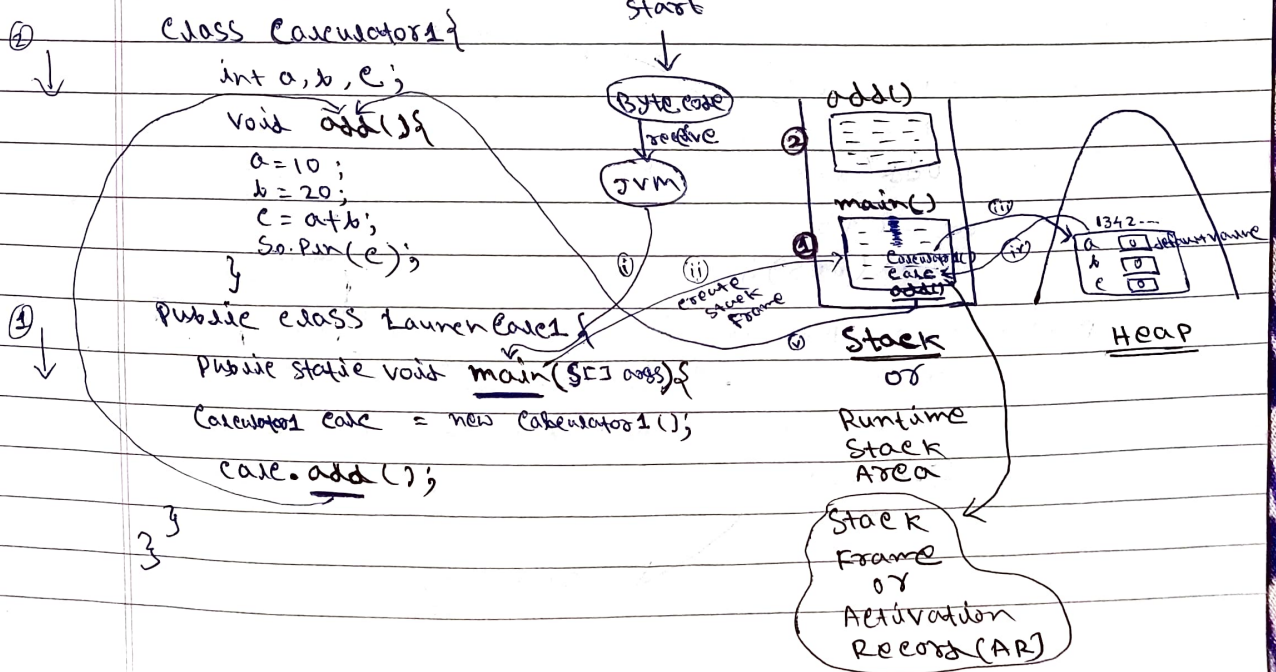 ②
class Calculator1{
int a, b, c;
void add(){
a=10;
b=20;
c = a+b;
So.Pln(c);
}
①
Public class LaunchCalc1 {
Public static void main(S[] args){
Calculator1 calc = new Calculator1();
calc.add();
}
}
Start
Byte code
receive
JVM
i
ii
create
Stack
Frame
add()
②
main()
①
Calculator1()
calc
add()
iii
iv
v
1342---
a 0 default value
b 0
c 0
Stack
or
Runtime
Stack
Area
Heap
Stack
Frame
or
Activation
Record (AR)